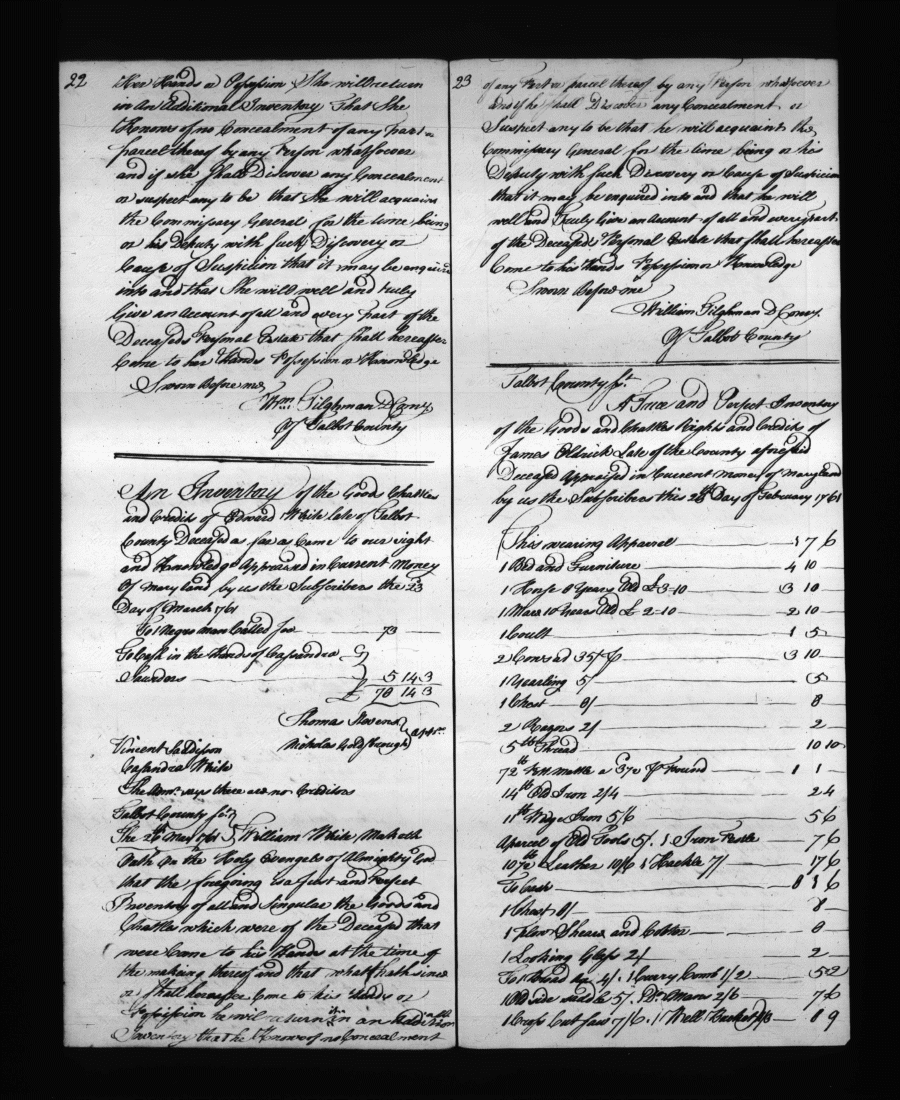 22
Her Hands or Possession She will return
in An Additional Inventory That She
Knows of no Concealment of any part or
parcel thereof by any Person whatsoever
and if she Shall Discover any Concealment
or suspect any to be that She will acquaint
the Commissary General for the time being
or his Deputy with such Discovery or
Cause of Suspicion that it may be enquired
into and that She will well and truly
Give an Account of all and every Part of the
Deceaseds Personal Estate that shall hereafter
Come to her Hands Possession or Knowledge
Sworn Before me
Wm. Tilghman D Comy
Of Talbot County
An Inventory of the Goods Chattles
and Credits of Edward White late of Talbot
County Deceased as far as Came to our sight
and Knowledge Appraised in Current Money
Of Maryland by us the Subscribers the 23
Day of March 1761
To 1 Negro man Called Joe 73
To Cash in the Hands of Cassandra
Saunders 5 14 3
£ 78 14 3
Thomas Stevens
Nicholas Goldsbrough
Vincent
Casandra White
The Admr. says there are no Creditors
Talbot County Sst.
The 28th May 1761 William White Maketh
Oath On the Holy Evangels of Almighty God
that the foregoing is a Just and Perfect
Inventory of all and Singular the Goods and
Chattles which were of the Deceased that
were Come to his Hands at the time of
the making thereof and that what hath since
or shall hereafter Come to his Hands or
Possession he will return in an Additional
Inventory that he Knows of no Concealment
23
of any Part or parcel thereof by any Person whatsoever
And if he shall Discover any Concealment or
Suspect any to be that he will acquaint the
Commissary General for the time being or his
Deputy with such Discovery or Cause of Suspicion
that it may be enquired into and that he will
well and Truly Give an Account of all and every part
of the Deceaseds Personal Estate that shall hereafter
Come to his Hands Possession or Knowledge
Sworn Before me
William Tilghman D Comy.
Of Talbot County
Talbot County Sst.
A True and Perfect Inventory
of the Goods and Chattles Rights and Credits of
James Late of the County aforesaid
Deceased Appraised in Current money of Maryland
by us the Subscribers this 28th Day of February 1761
This wearing Apparrel 1 7 6
1 Bed and Furniture 4 10
1 Horse 8 Years Old £3-10 3 10
1 Mare 10 Years Old £2-10 2 10
1 Coult 1 5
2 Cows ad 35/ P 3 10
1 Yearling 5/ 5
1 Chest 8/ 8
2 Razors 2/ 2
5 lb Thread 10 10
72 lb Pott Mettle a P Pound 1 1
14 lb Old Iron 2/4 2 4
11 lb Iron 5/6 5 6
A parcel of Old Tools 5/. 1 Iron Pestle 7 6
Leather 10/6 1 Hackle 7/ 17 6
To Cash 8 1 6
1 Chest 8/ 8
1 Plow Shears and Colter 8
1 Looking Glass 2/ 2
To 1 4/. 1 Curry Comb 1/2 5 2
1 Old side saddle 5/. Do. Mans 2/6 7 6
1 Cross Cut saw 7/6. 1 Well Bucket 1/3 8 9